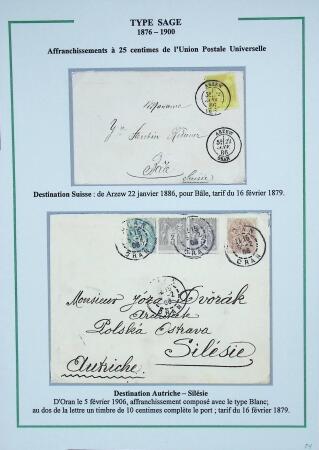 TYPE SAGE
1876 - 1900
Affranchissements à 25 centimes de l'Union Postale Universelle
ARZEW
ORAN
Madame
ARZEW
ORAN
Bâle
Suisse
Destination Suisse : de Arzew 22 janvier 1886, pour Bâle, tarif du 16 février 1879.
ORAN
ORAN
Monsieur Józa Dvořák
Polská Ostrava
Silésie
Autriche
Destination Autriche – Silésie
D'Oran le 5 février 1906, affranchissement composé avec le type Blanc;
au dos de la lettre un timbre de 10 centimes complète le port ; tarif du 16 février 1879.